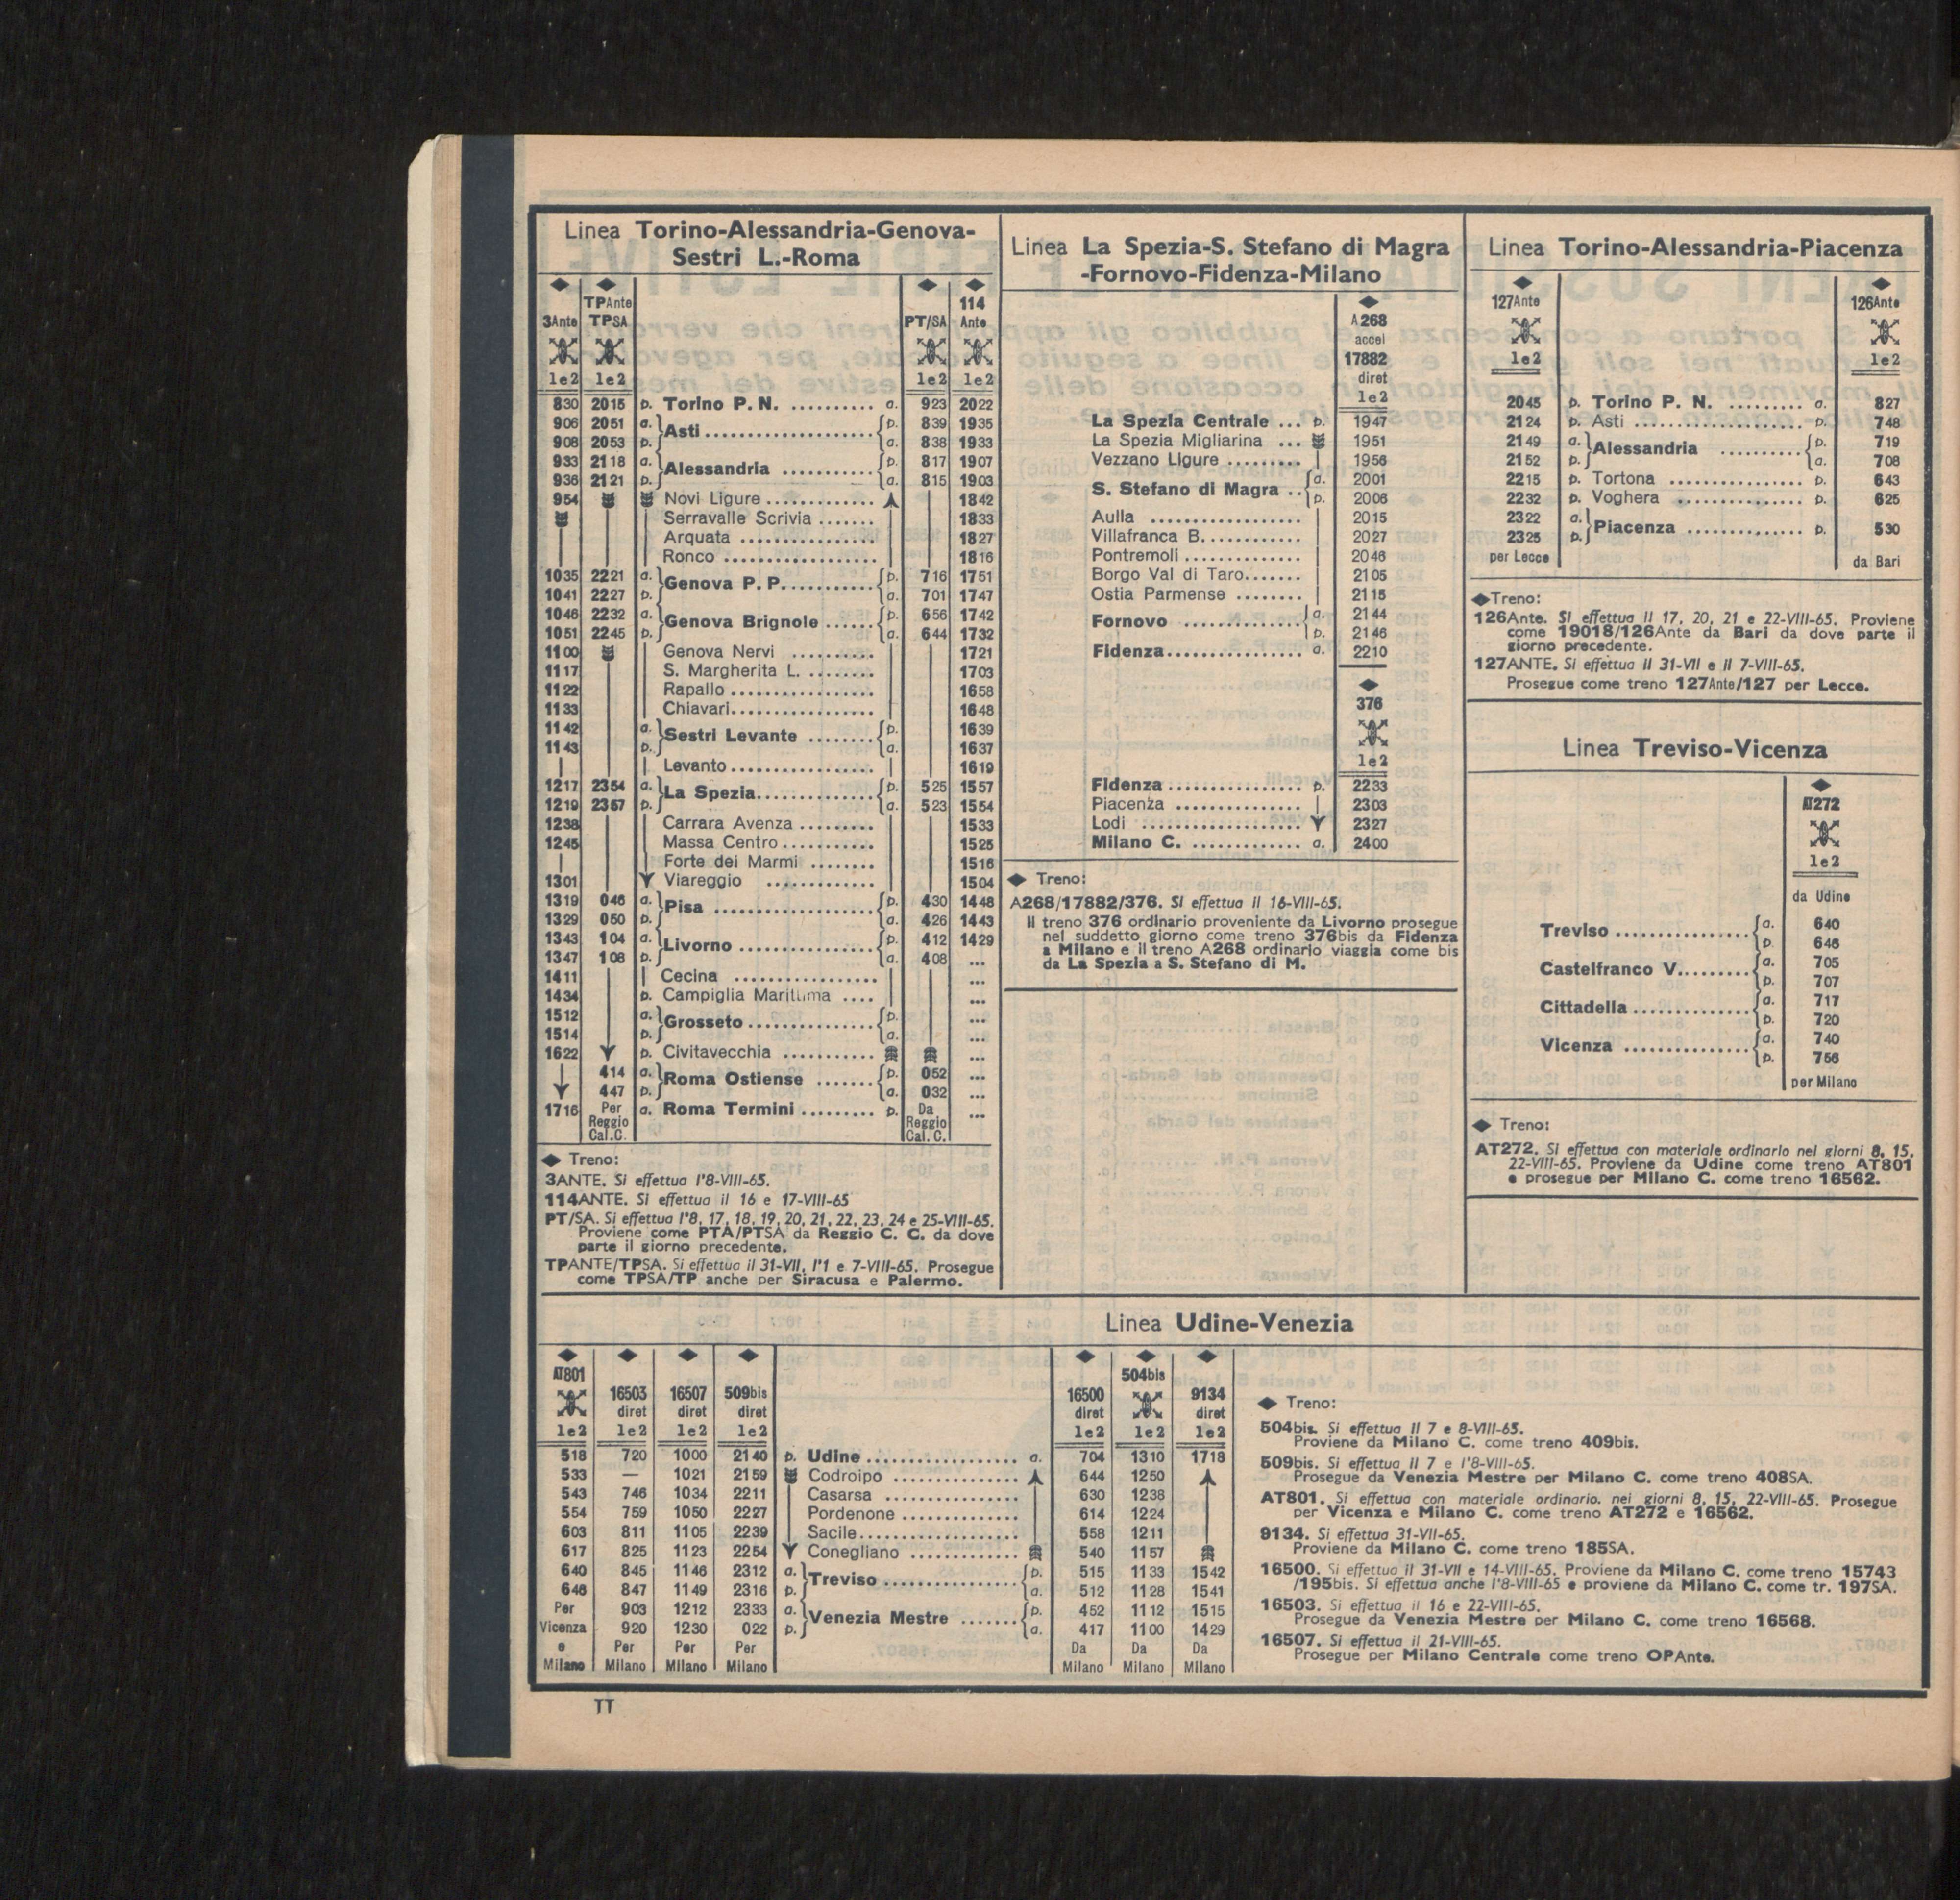 Linea Torino-Alessandria-Genova-
Sestri L.-Roma
TPAnte 114
3Ante TPSA PT/SA Ante
1e2 1e2 1e2 1e2
830 2015 p. Torino P. N. .......... a. 923 2022
906 2051 a. Asti ................... p. 839 1935
908 2053 p. a. 838 1933
933 2118 a. Alessandria .......... p. 817 1907
936 2121 p. a. 815 1903
954 Novi Ligure ............ 1842
Serravalle Scrivia ....... 1833
Arquata ............... 1827
Ronco ................. 1816
1035 2221 a. Genova P. P. .......... p. 716 1751
1041 2227 p. a. 701 1747
1046 2232 a. Genova Brignole ...... p. 656 1742
1051 2245 p. a. 644 1732
1100 Genova Nervi .......... 1721
1117 S. Margherita L. ........ 1703
1122 Rapallo ................ 1658
1133 Chiavari ................ 1648
1142 a. Sestri Levante ........ p. 1639
1143 p. a. 1637
| Levanto ................ 1619
1217 2354 a. La Spezia ............. p. 525 1557
1219 2357 p. a. 523 1554
1238 Carrara Avenza ......... 1533
1245 Massa Centro ........... 1525
| Forte dei Marmi ........ 1516
1301 Viareggio ............ 1504
1319 046 a. Pisa .................. p. 430 1448
1329 050 p. a. 426 1443
1343 104 a. Livorno ............... p. 412 1429
1347 108 p. a. 408 ...
1411 Cecina ................. ...
1434 p. Campiglia Marittima .... ...
1512 a. Grosseto .............. p. ...
1514 p. a. ...
1622 p. Civitavecchia ........... ...
414 a. Roma Ostiense ....... p. 052 ...
447 p. a. 032 ...
1716 Per a. Roma Termini ......... p. Da ...
Reggio Reggio
Cal.C. Cal.C.
◆ Treno:
3ANTE. Si effettua l'8-VIII-65.
114ANTE. Si effettua il 16 e 17-VIII-65
PT/SA. Si effettua l'8, 17, 18, 19, 20, 21, 22, 23, 24 e 25-VIII-65.
Proviene come PTA/PTSA da Reggio C. C. da dove
parte il giorno precedente.
TPANTE/TPSA. Si effettua il 31-VII, l'1 e 7-VIII-65. Prosegue
come TPSA/TP anche per Siracusa e Palermo.
Linea La Spezia-S. Stefano di Magra
-Fornovo-Fidenza-Milano
◆
A268
accel
17882
diret
1e2
La Spezia Centrale ... p. 1947
La Spezia Migliarina ... 1951
Vezzano Ligure ......... 1956
S. Stefano di Magra .. a. 2001
p. 2006
Aulla .................. 2015
Villafranca B. ........... 2027
Pontremoli .............. 2046
Borgo Val di Taro....... 2105
Ostia Parmense ........ 2115
Fornovo .............. a. 2144
p. 2146
Fidenza ................ a. 2210
◆
376
1e2
Fidenza ................ p. 2233
Piacenza ............... 2303
Lodi ................... 2327
Milano C. ............. a. 2400
◆ Treno:
A268/17882/376. Si effettua il 16-VIII-65.
Il treno 376 ordinario proveniente da Livorno prosegue
nel suddetto giorno come treno 376bis da Fidenza
a Milano e il treno A268 ordinario viaggia come bis
da La Spezia a S. Stefano di M.
Linea Torino-Alessandria-Piacenza
127Ante 126Ante
1e2 1e2
2045 p. Torino P. N. ......... a. 827
2124 p. Asti .................... p. 748
2149 a. Alessandria .......... p. 719
2152 p. a. 708
2215 p. Tortona ................ p. 643
2232 p. Voghera ............... p. 625
2322 a. Piacenza ............. p. 530
2325 p.
per Lecce da Bari
◆Treno:
126Ante. Si effettua il 17, 20, 21 e 22-VIII-65. Proviene
come 19018/126Ante da Bari da dove parte il
giorno precedente.
127ANTE. Si effettua il 31-VII e il 7-VIII-65.
Prosegue come treno 127Ante/127 per Lecce.
Linea Treviso-Vicenza
◆
AT272
1e2
da Udine
Treviso ................. a. 640
p. 646
Castelfranco V. ......... a. 705
p. 707
Cittadella .............. a. 717
p. 720
Vicenza ................ a. 740
p. 756
per Milano
◆ Treno:
AT272. Si effettua con materiale ordinario nei giorni 8, 15,
22-VIII-65. Proviene da Udine come treno AT801
e prosegue per Milano C. come treno 16562.
Linea Udine-Venezia
AT801 504bis
16503 16507 509bis 16500 9134
diret diret diret diret diret
1e2 1e2 1e2 1e2 1e2 1e2 1e2
518 720 1000 2140 p. Udine ................... a. 704 1310 1718
533 — 1021 2159 Codroipo ................ 644 1250
543 746 1034 2211 Casarsa ................. 630 1238
554 759 1050 2227 Pordenone ............... 614 1224
603 811 1105 2239 Sacile .................... 558 1211
617 825 1123 2254 Conegliano .............. 540 1157
640 845 1146 2312 a. Treviso ................. p. 515 1133 1542
646 847 1149 2316 p. a. 512 1128 1541
Per 903 1212 2333 a. Venezia Mestre ....... p. 452 1112 1515
Vicenza 920 1230 022 p. a. 417 1100 1429
e Per Per Per Da Da Da
Milano Milano Milano Milano Milano Milano Milano
◆ Treno:
504bis. Si effettua il 7 e 8-VIII-65.
Proviene da Milano C. come treno 409bis.
509bis. Si effettua il 7 e l'8-VIII-65.
Prosegue da Venezia Mestre per Milano C. come treno 408SA.
AT801. Si effettua con materiale ordinario. nei giorni 8, 15, 22-VIII-65. Prosegue
per Vicenza e Milano C. come treno AT272 e 16562.
9134. Si effettua 31-VII-65.
Proviene da Milano C. come treno 185SA.
16500. Si effettua il 31-VII e 14-VIII-65. Proviene da Milano C. come treno 15743
/195bis. Si effettua anche l'8-VIII-65 e proviene da Milano C. come tr. 197SA.
16503. Si effettua il 16 e 22-VIII-65.
Prosegue da Venezia Mestre per Milano C. come treno 16568.
16507. Si effettua il 21-VIII-65.
Prosegue per Milano Centrale come treno OPAnte.
TT